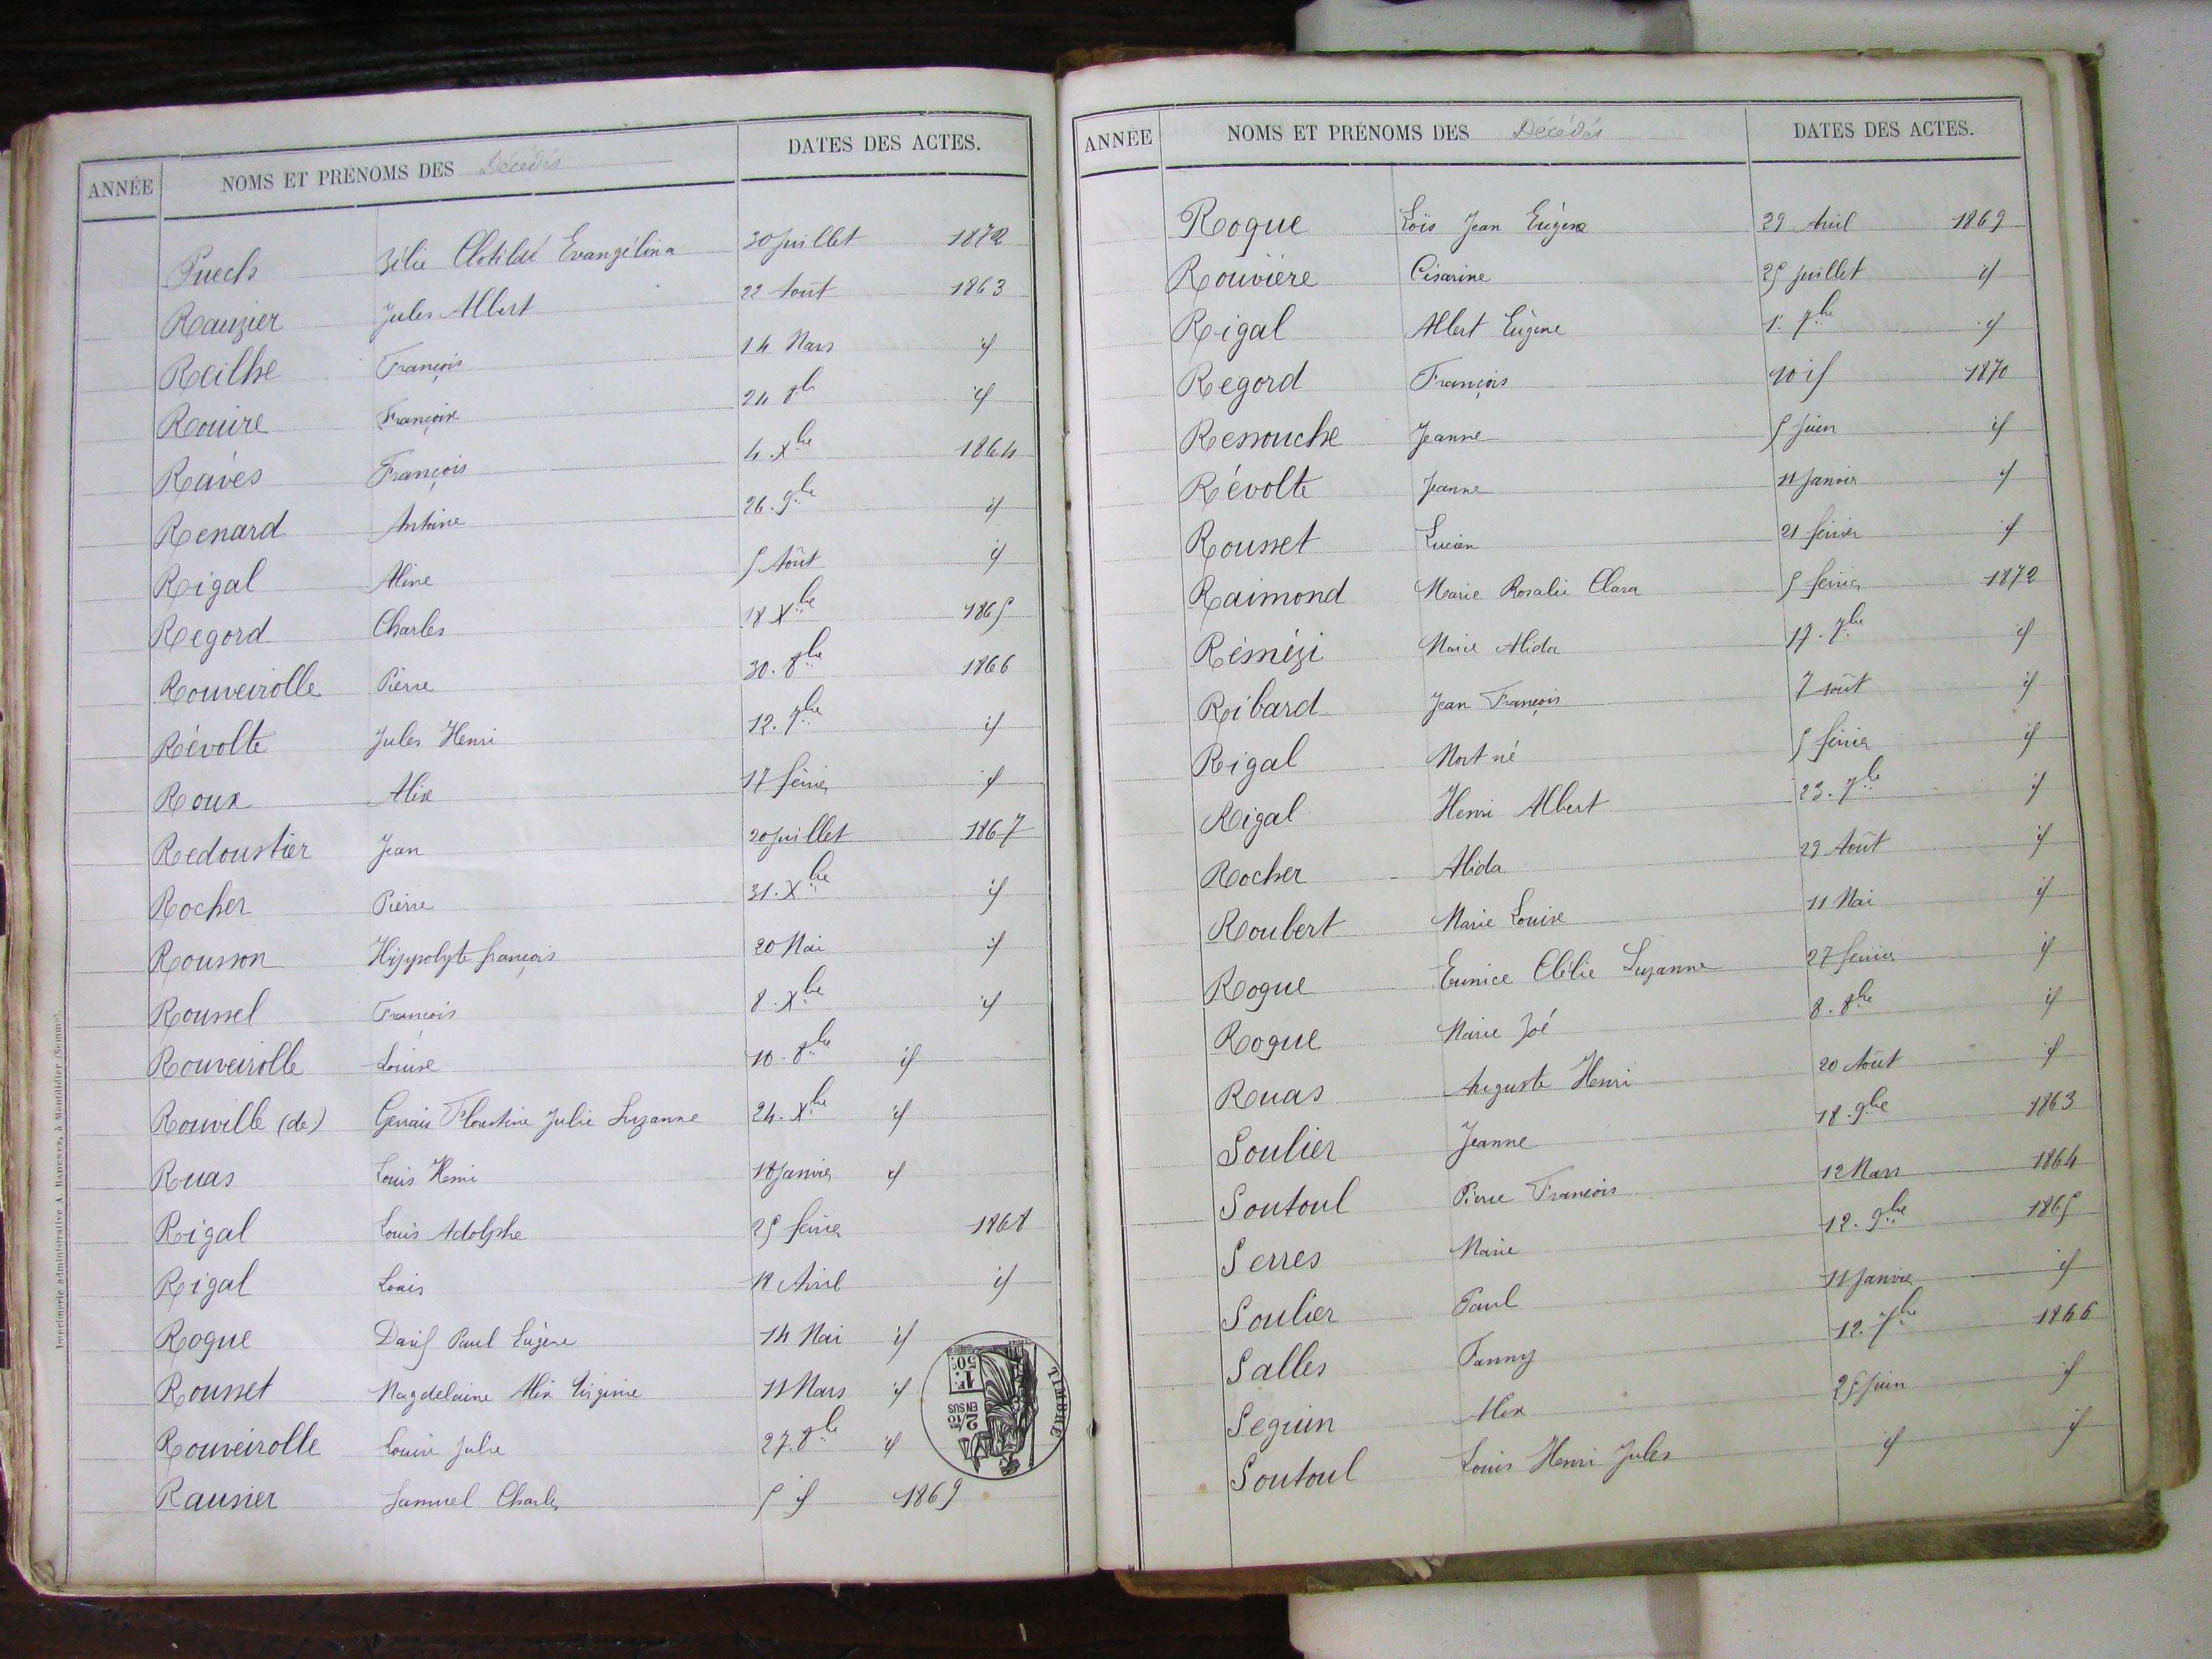 ANNÉE NOMS ET PRÉNOMS DES Décédés DATES DES ACTES.
Puech Zélie Clotilde Evangélina 30 Juillet 1872
Rauzier Jules Albert 22 Août 1863
Reilhe François 14 Mars id
Rouire Françoise 24 8bre id
Ravès François 4. Xbre 1864
Renard Antoine 26. 9bre id
Rigal Aline 5 Août id
Regord Charles 18 Xbre 1865
Rouveirolle Pierre 30. 8bre 1866
Révolte Jules Henri 12. 7bre id
Roux Alix 17 février id
Redoustier Jean 20 Juillet 1867
Rocher Pierre 31. Xbre id
Rousson Hippolyte françois 20 Mai id
Roussel François 8. Xbre id
Rouveirolle Louise 10. 8bre id
Rouville (de) Gervais Florentine Julie Suzanne 24. Xbre id
Rouas Louis Henri 18 Janvier id
Rigal Louis Adolphe 25 février 1868
Rigal Louis 11 Avril id
Roque David Paul Eugène 14 Mai id
Rousset Magdelaine Alix Virginie 11 Mars id
Rouveirolle Louise Julie 27. 8bre id
Rausier Samuel Charles 5 id 1869
TIMBRE
1F. 50c.
2/10mes EN SUS
Imprimerie administrative A. RADENEZ, à Montdidier (Somme).
ANNÉE NOMS ET PRÉNOMS DES Décédés DATES DES ACTES.
Roque Loïs Jean Eugène 29 Avril 1869
Rouvière Césarine 25 Juillet id
Rigal Albert Eugène 1er 7bre id
Regord François 10 id 1870
Ressouche Jeanne 5 Juin id
Révolte Jeanne 11 Janvier id
Rousset Lucien 21 février id
Raimond Marie Rosalie Clara 5 février 1872
Rémézi Marie Alida 17. 7bre id
Ribard Jean François 7 Août id
Rigal Mort né 5 février id
Rigal Henri Albert 23. 7bre id
Rocher Alida 29 Août id
Roubert Marie Louise 11 Mai id
Roque Eunice Clélie Suzanne 27 février id
Roque Marie Zoé 8. 8bre id
Rouas Auguste Henri 20 Août id
Soulier Jeanne 18. 9bre 1863
Soutoul Pierre François 12 Mars 1864
Serres Marie 12. 9bre 1865
Soulier Paul 11 Janvier id
Salles Fanny 12. 7bre 1866
Seguin Alix 25 Juin id
Soutoul Louis Henri Jules id id